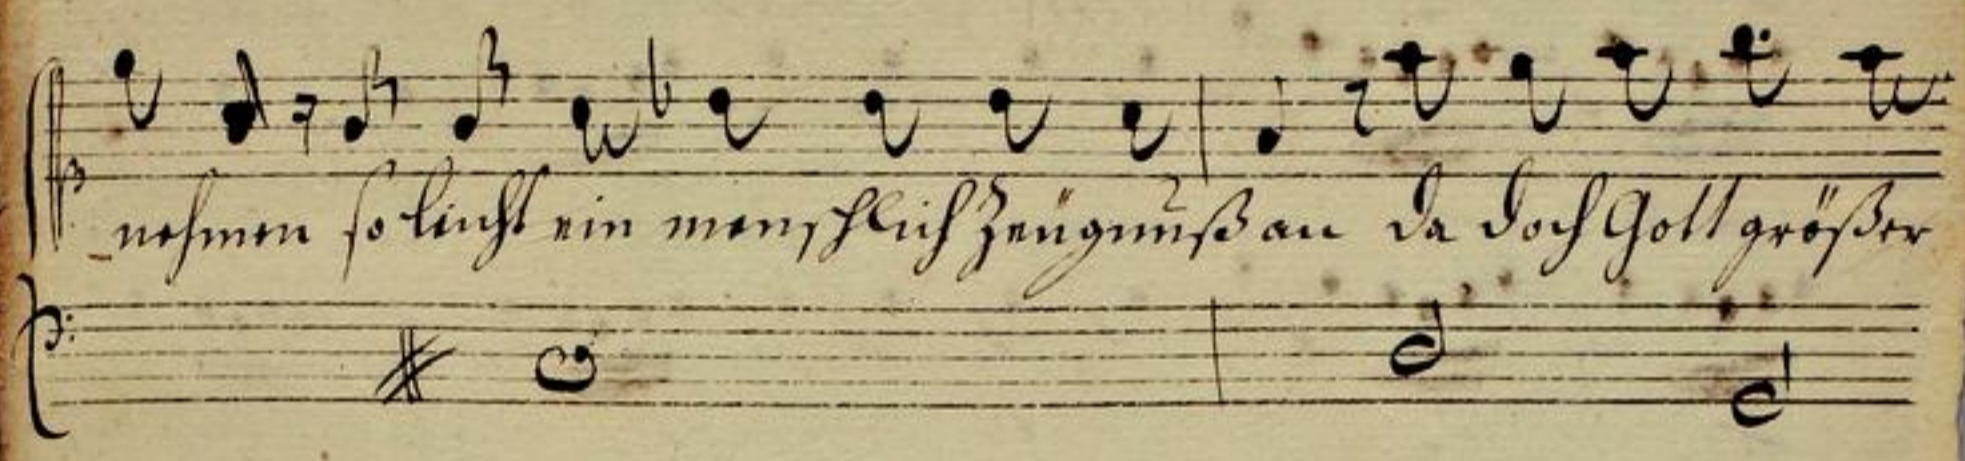 nehmen so leicht ein menschlich Zeügnuß an da doch Gott größer